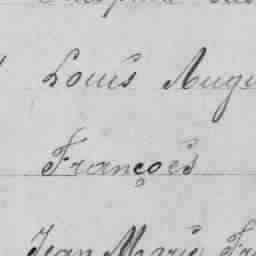 Louis Augu
François
Jean Marie Fr